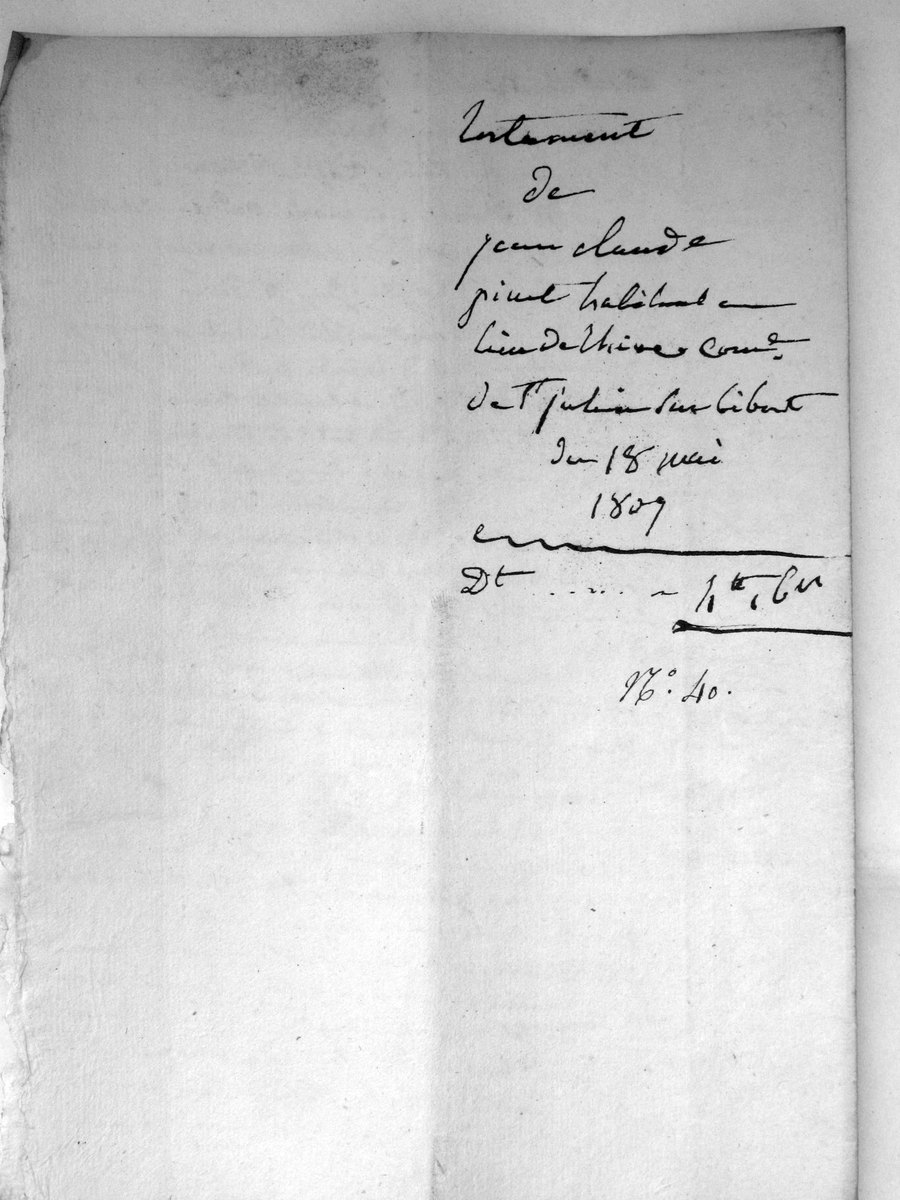 testament
de
jean claude
pinet habitant au
lieu de comᵉ
de Sᵗ julien sur bibost
du 18 mai
1809
Dᵗ ........ 4ᵗᵗ,
Nº. 40.